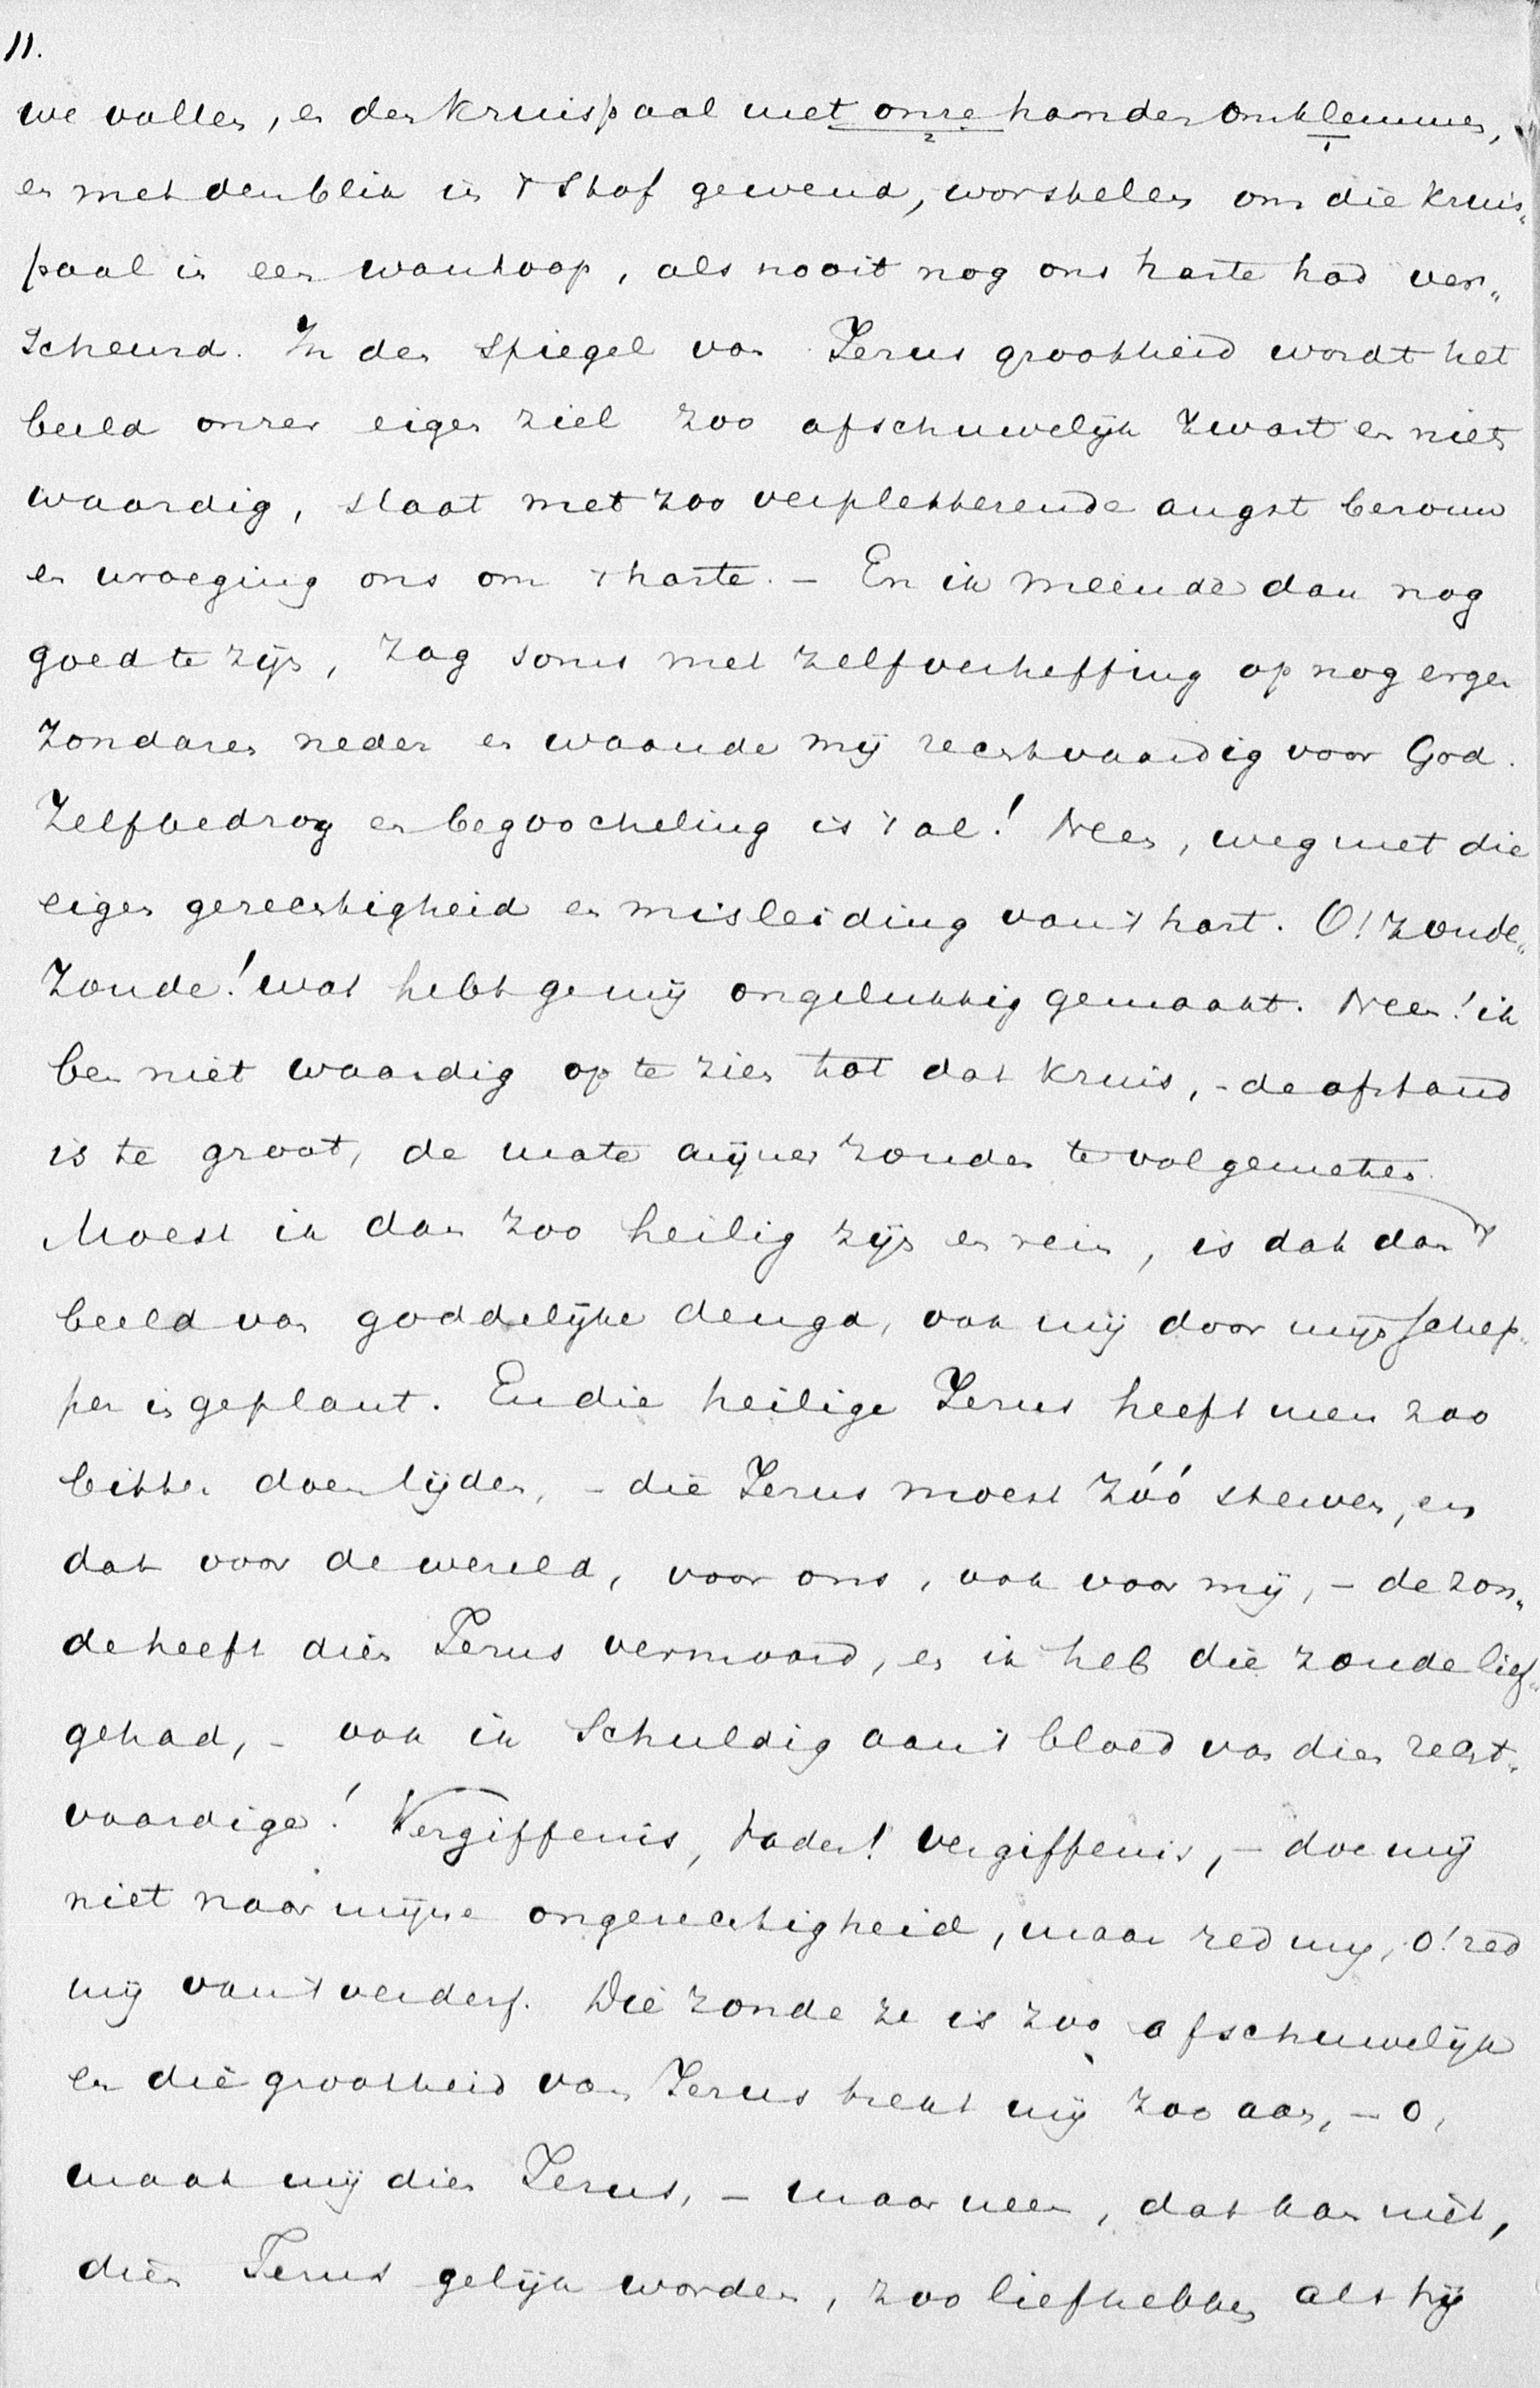 11.
we vallen, en den kruispaal met onze handen omklemmen,
en met den blik in 't stof gewend, worstelen om die kruis„
paal in een wanhoop, als nooit nog ons harte had ver„
scheurd. In den spiegel van Jezus grootheid wordt het
beeld onzer eigen ziel zoo afschuwelijk zwart en niets
waardig, slaat met zoo verpletterende angst berouw
en wroeging ons om 't harte. – En ik meende dan nog
goed te zijn, zag soms met zelfverheffing op nog erger
zondaren neder en waande mij rechtvaardig voor God.
Zelfbedrog en begoocheling is 't al! Neen, weg met die
eigen gerechtigheid en misleiding van 't hart. O! zonde„
zonde! wat hebt ge mij ongelukkig gemaakt. Neen! ik
ben niet waardig op te zien tot dat kruis, – de afstand
is te groot, de mate mijner zonden te vol gemeten.
Moest ik dan zoo heilig zijn en rein, is dat dan 't
beeld van goddelijke deugd, ook mij door mijn schep„
per in geplant. En die heilige Jezus heeft men zoo
bitter doen lijden, – die Jezus moest zóó sterven, en
dat voor de wereld, voor ons, ook voor mij, – de zon„
de heeft dien Jezus vermoord, en ik heb die zonde lief„
gehad, – ook ik schuldig aan 't bloed van dien recht„
vaardige! Vergiffenis, Vader! vergiffenis, – doe mij
niet naar mijne ongerechtigheid, maar red mij, o! red
mij van 't verderf. Die zonde ze is zoo afschuwelijk
en die grootheid van Jezus trekt mij zoo aan, – o,
maak mij dien Jezus, – maar neen, dat kan niet,
dien Jezus gelijk worden, zoo liefhebben als hij